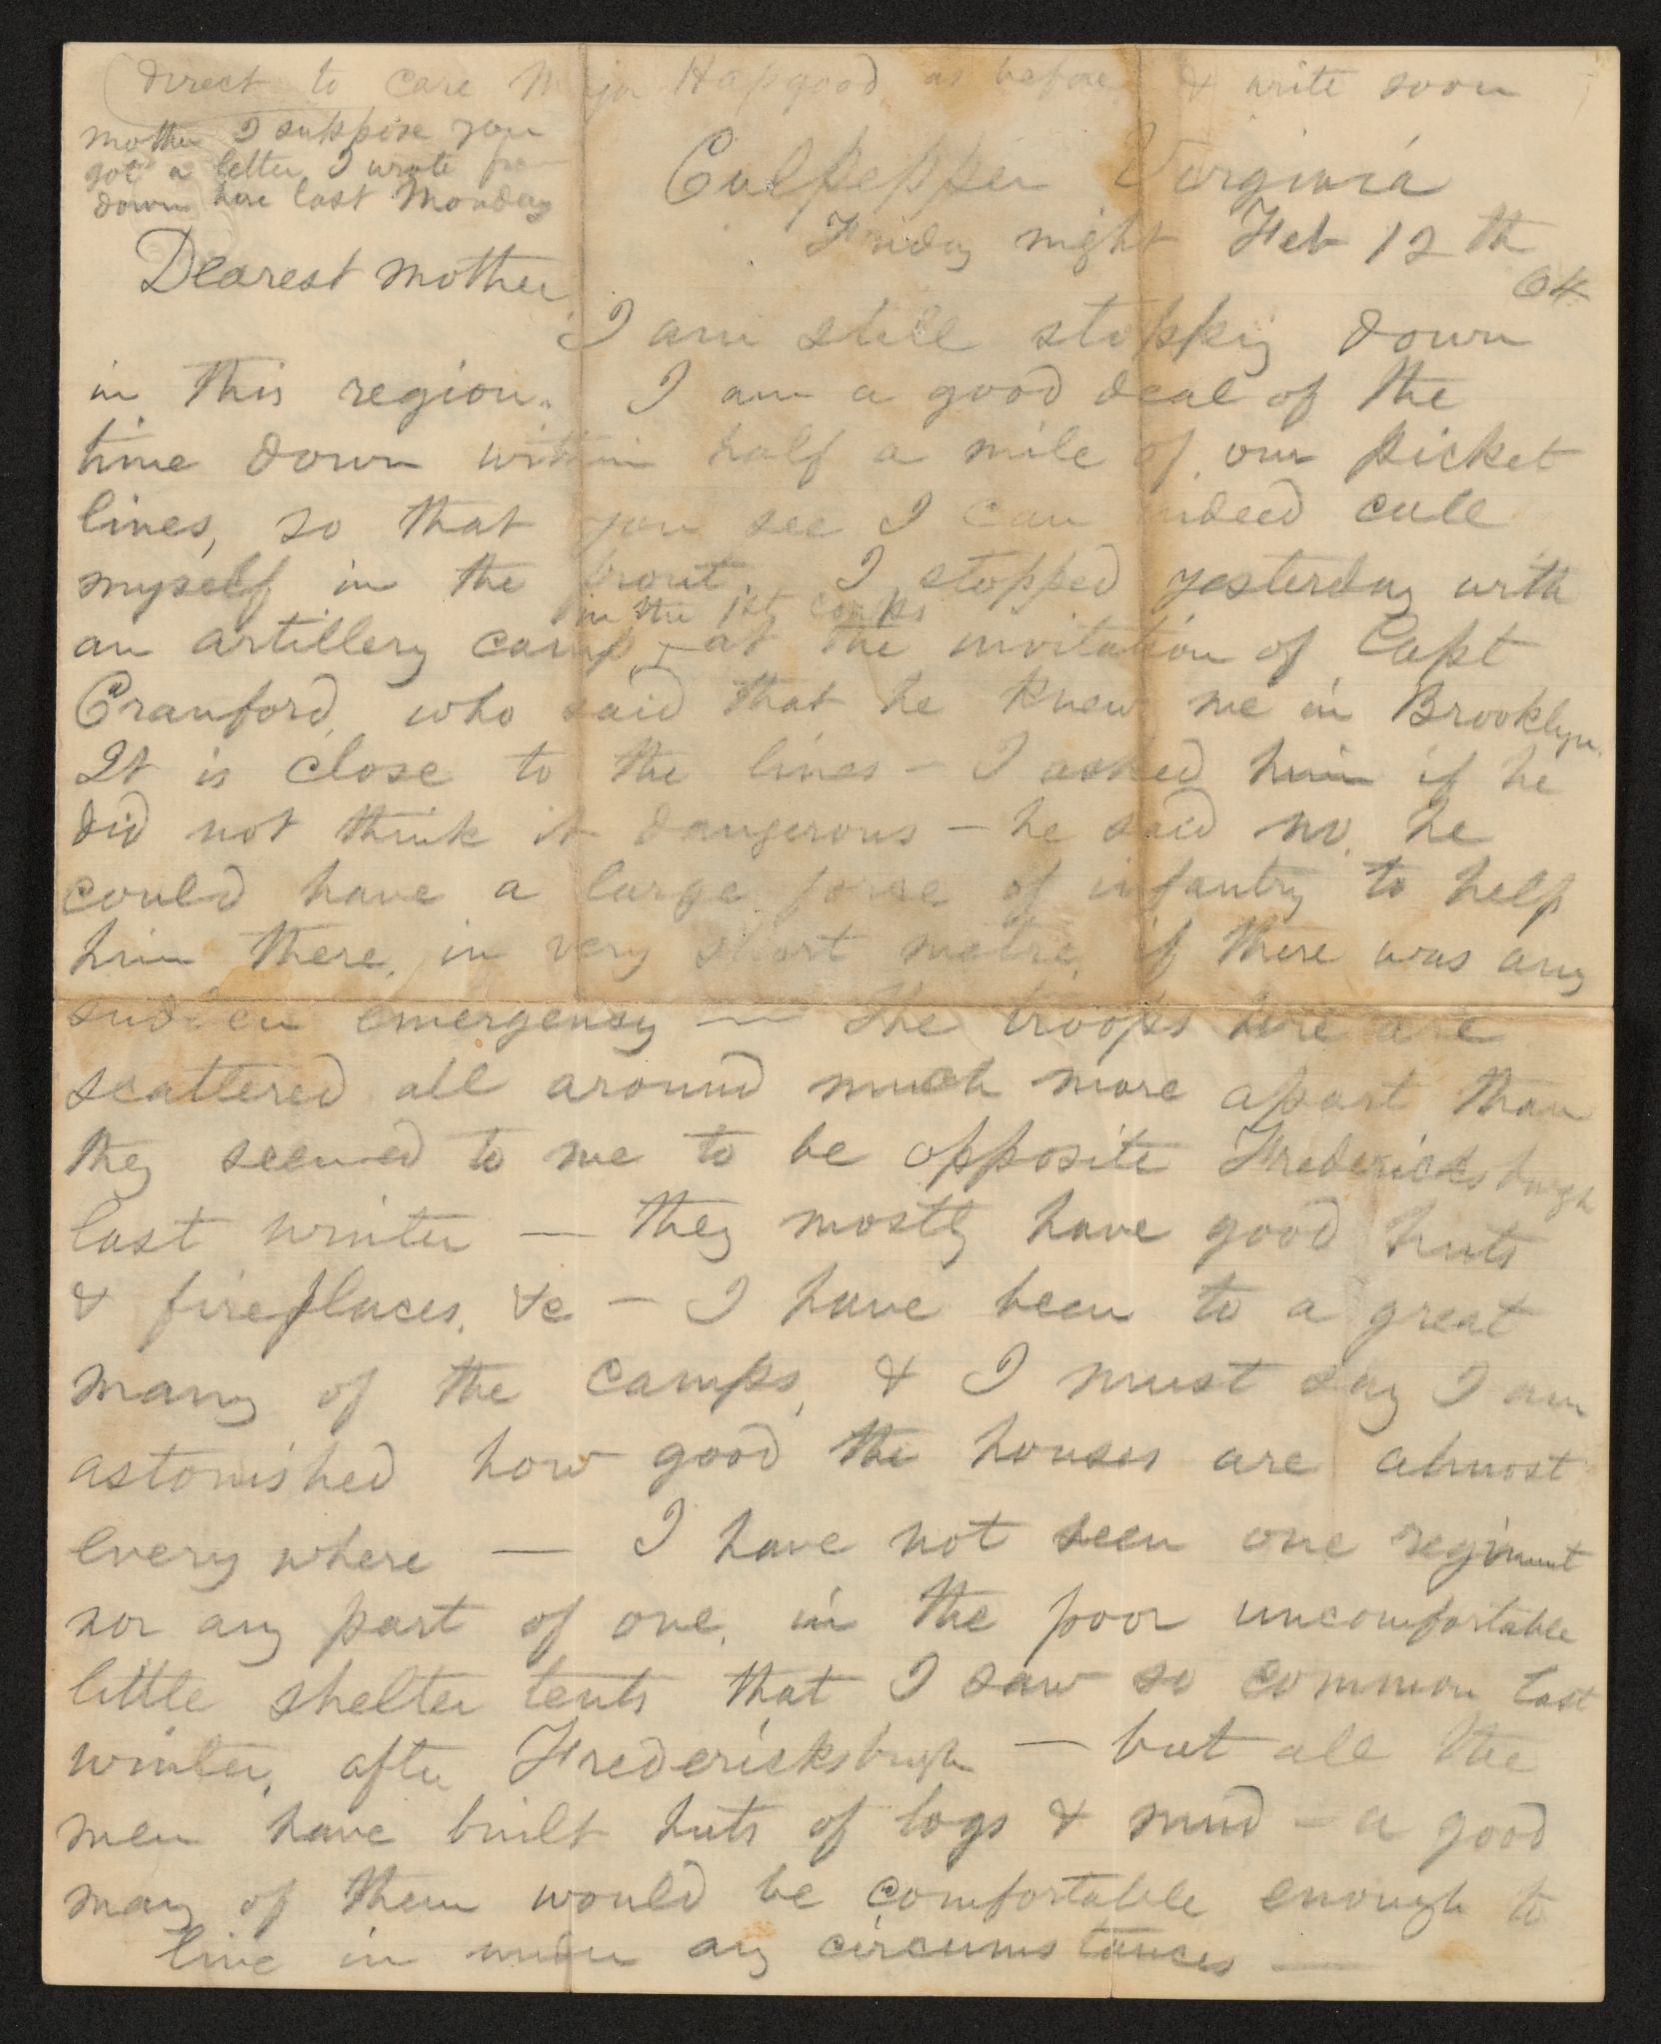 direct to care Major Hapgood as before & write soon
mother I suppose you
got a letter I wrote from
down here last Monday
Culpepper Virginia
Friday night Feb 12th
64
Dearest mother
I am still stopping down
in this region. I am a good deal of the
time down within half a mile of our picket
lines, so that you see I can indeed call
myself in the front. I stopped yesterday with
in the 1st corps
an artillery camp, at the invitation of Capt
Cranford, who said that he knew me in Brooklyn.
It is close to the lines — I asked him if he
did not think it dangerous — he said no, he
could have a large force of infantry to help
him there, in very short metre, if there was any
sudden emergency — The troops here are
scattered all around much more apart than
they seemed to me to be opposite Fredericksburgh
last winter — they mostly have good huts
& fireplaces, &c — I have been to a great
many of the camps, & I must say I am
astonished how good the houses are almost
every where — I have not seen one regiment
nor any part of one, in the poor uncomfortable
little shelter tents that I saw so common last
winter, after Fredericksburgh — but all the
men have built huts of logs & mud — a good
many of them would be comfortable enough to
live in under any circumstances —